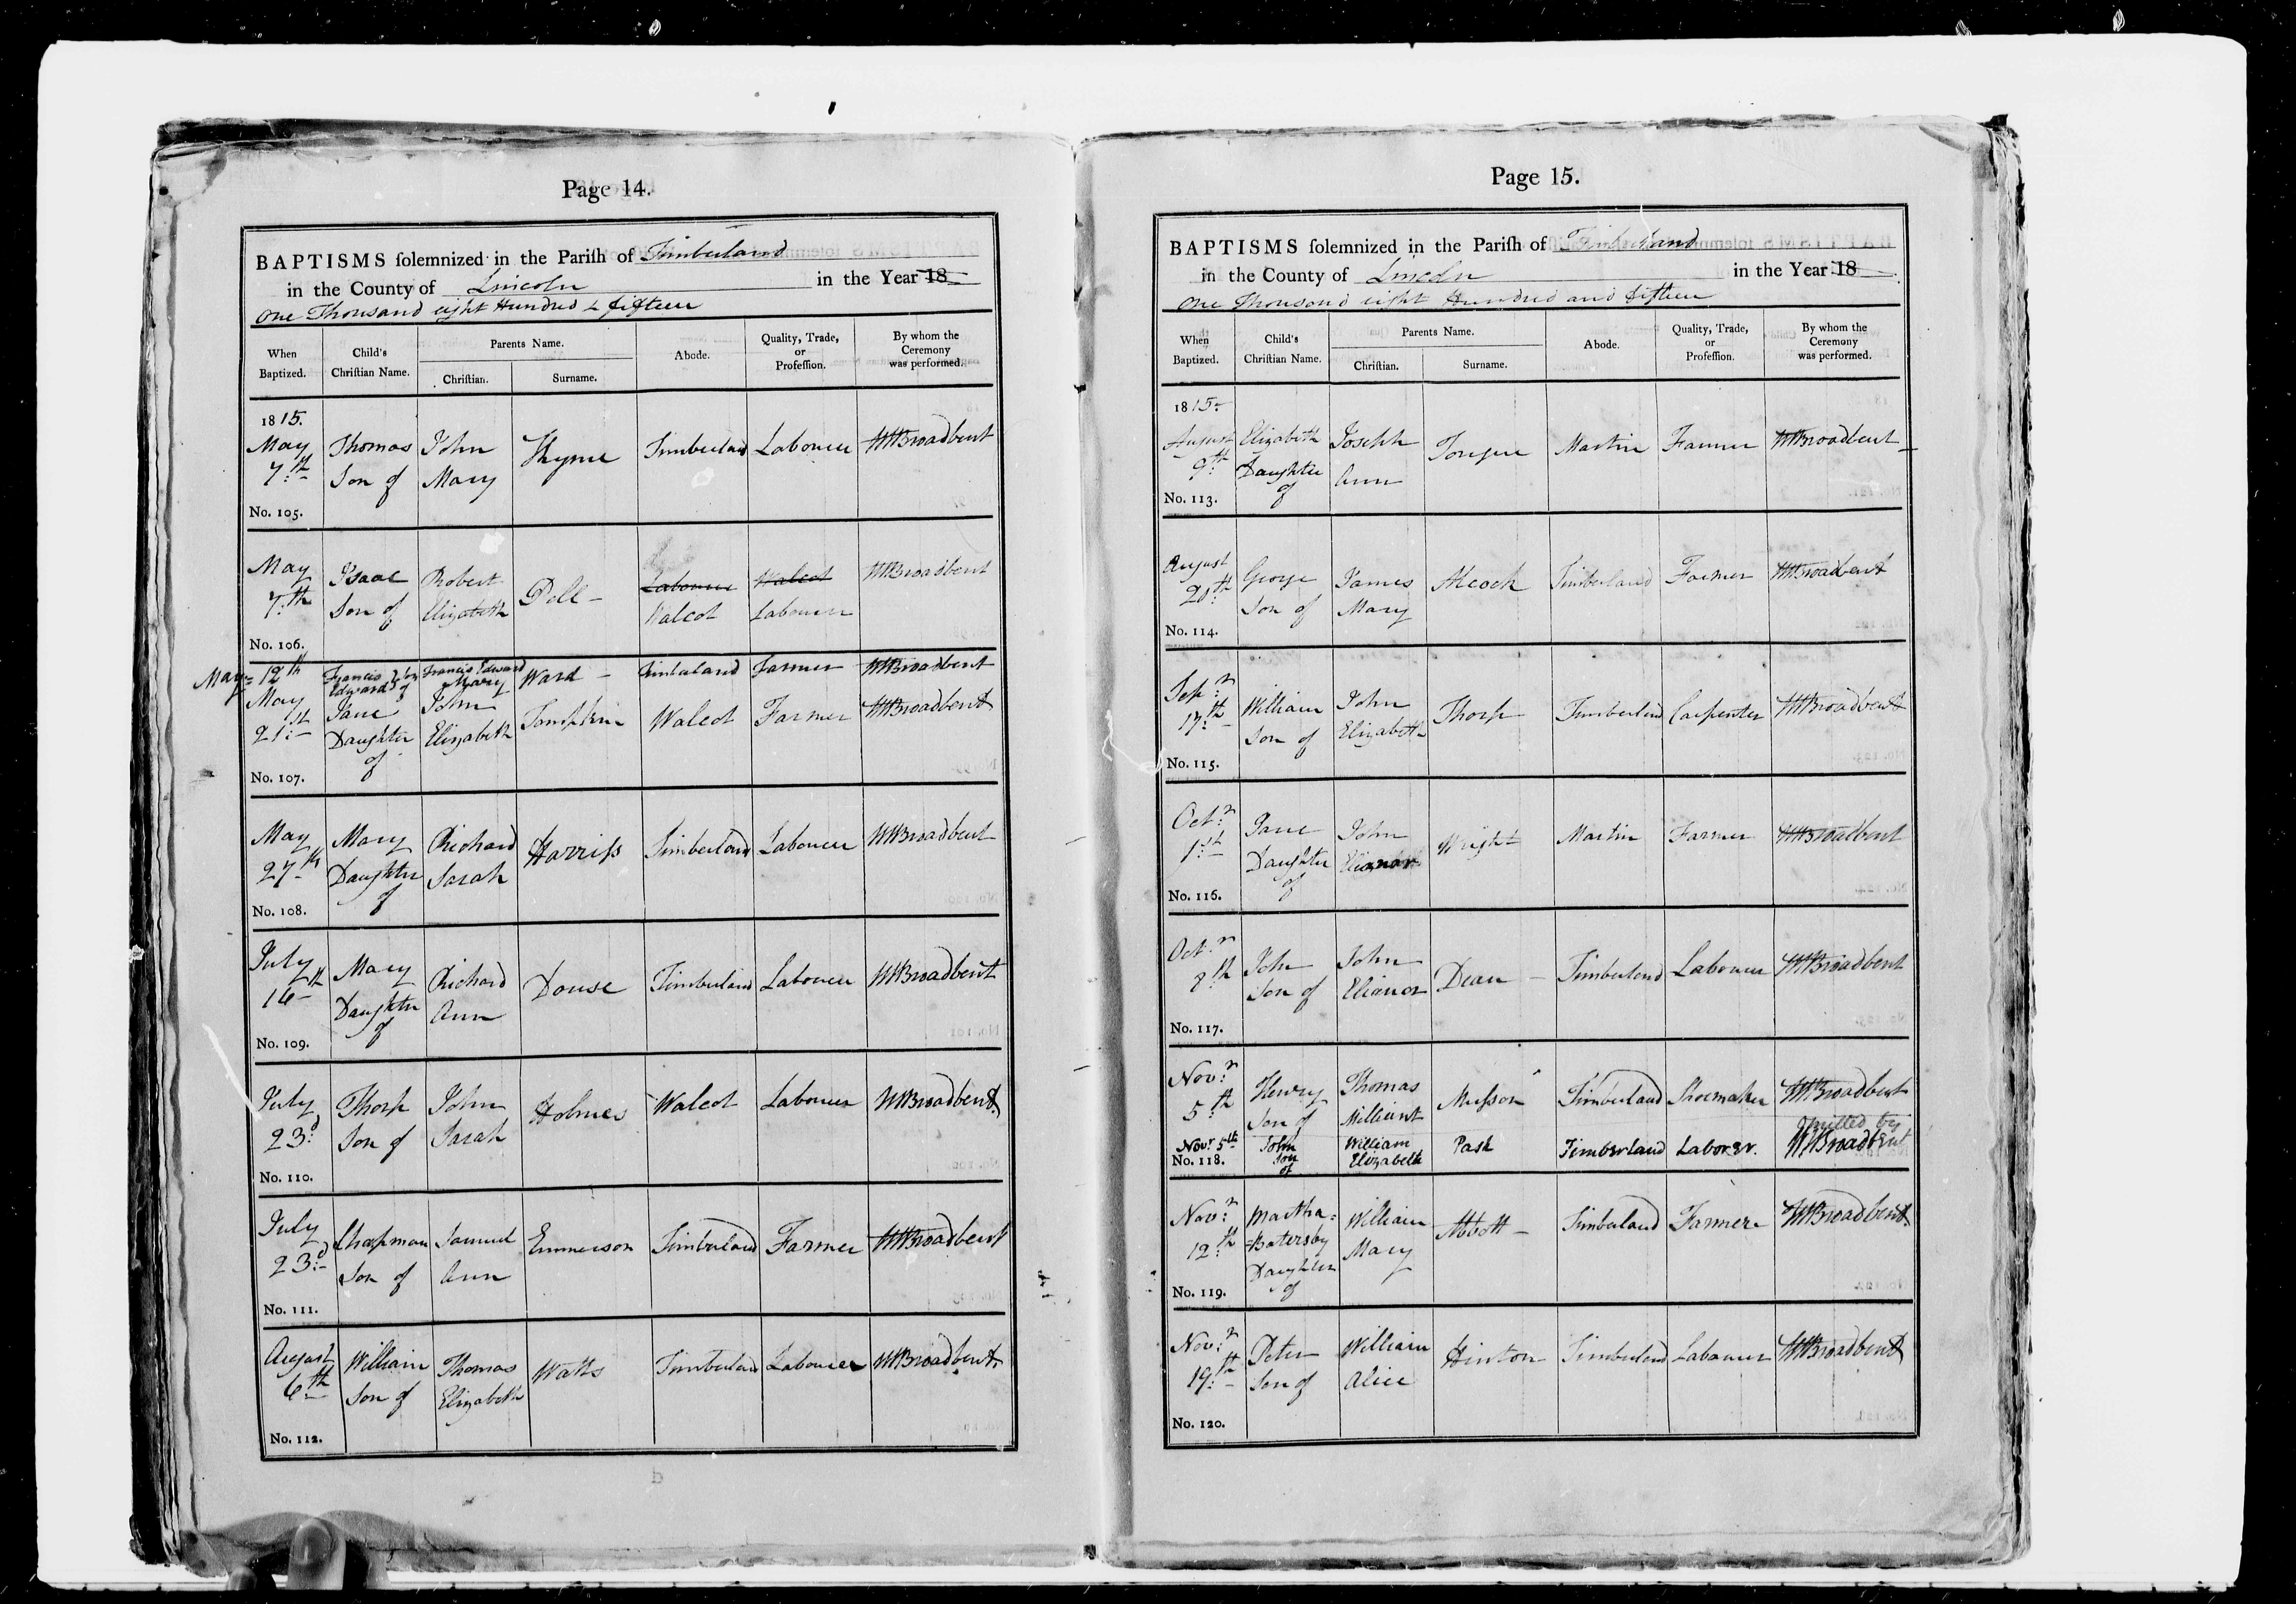 Page 14.
BAPTISMS ſolemnized in the Pariſh of Timberland
in the County of Lincoln in the Year 18
One Thousand eight Hundred & fifteen
When Baptized. Child's Chriſtian Name. Parents Name. Chriſtian. Surname. Abode. Quality, Trade, or Profeſſion. By whom the Ceremony was performed.
1815.
May Thomas John Thyme Timberland Labourer WBroadbent
7th Son of Mary
No. 105.
May Isaac Robert Labourer Walcot WBroadbent
7th Son of Elizabeth Walcot Labourer
No. 106.
May 12th Francis Edward Son of Francis Edward Mary Ward Timberland Farmer WBroadbent
May Jane John Tompkin Walcot Farmer WBroadbent
21st Daughter Elizabeth
of
No. 107.
May Mary Richard Harriſs Timberland Labourer WBroadbent
27th Daughter Sarah
of
No. 108.
July Mary Richard Douse Timberland Labourer WBroadbent
16th Daughter Ann
of
No. 109.
July Thorp John Holmes Walcot Labourer WBroadbent
23d Son of Sarah
No. 110.
July Chapman Samuel Emmerson Timberland Farmer WBroadbent
23d Son of Ann
No. 111.
August William Thomas Watts Timberland Labourer WBroadbent
6th Son of Elizabeth
No. 112.
Page 15.
BAPTISMS ſolemnized in the Pariſh of Timberland
in the County of Lincoln in the Year 18
One Thousand eight Hundred and fifteen
When Baptized. Child's Chriſtian Name. Parents Name. Chriſtian. Surname. Abode. Quality, Trade, or Profeſſion. By whom the Ceremony was performed.
1815.
August Elizabeth Joseph Tongue Martin Farmer WBroadbent
9th Daughter Ann
of
No. 113.
August George James Alcock Timberland Farmer WBroadbent
20th Son of Mary
No. 114.
Sepr William John Thorp Timberland Carpenter WBroadbent
17th Son of Elizabeth
No. 115.
Octr Jane John Wright Martin Farmer WBroadbent
1st Daughter Elianor
of
No. 116.
Octr John John Dean Timberland Labourer WBroadbent
8th Son of Elianor
No. 117.
Novr Henry Thomas Muſson Timberland Shoemaker WBroadbent
5th Son of Millicent
Novr 5th John William Pask Timberland Laborer. Omitted by WBroadbent
No. 118. Son of Elizabeth
Novr Martha= William Abbott Timberland Farmer WBroadbent
12th =Batersby Mary
Daughter
No. 119. of
Novr Peter William Hinton Timberland Labourer WBroadbent
19th Son of Alice
No. 120.